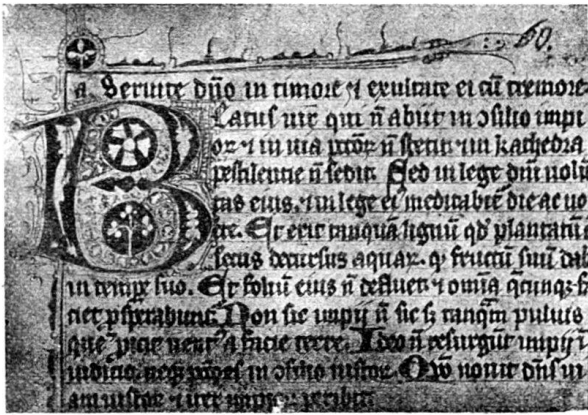 60.
a. Seruite dño in timore ⁊ exultate ei cū tremore
Beatus uir qui ñ abiit in ꝯsilio impi
oꝝ ⁊ in uia pctoꝝ ñ stetit ⁊ in kathedra
pestilentie ñ sedit. Sed in lege dñi uolū
tas eius, ⁊ in lege eiꝰ meditabit̄ die ac no
cte. Et erit tanquā lignū qd̓ plantatū ē
secus decursus aquaꝝ. qͩ fructū suū dab
in tempe suo. Et foliū eius ñ defluet ⁊ omīa qcunqꝫ fa
ciet ꝓsperabunt̄. Non sic impij ñ sic sꝫ tanqm̄ puluis
quē ꝓicit uentꝰ a facie terre. Ideo ñ resurgūt impij i
iudicio. neqꝫ pctores in ꝯsilio iustoꝝ. Qm̄ nouit dñs ui
am iustoꝝ ⁊ iter impioꝝ peribit.